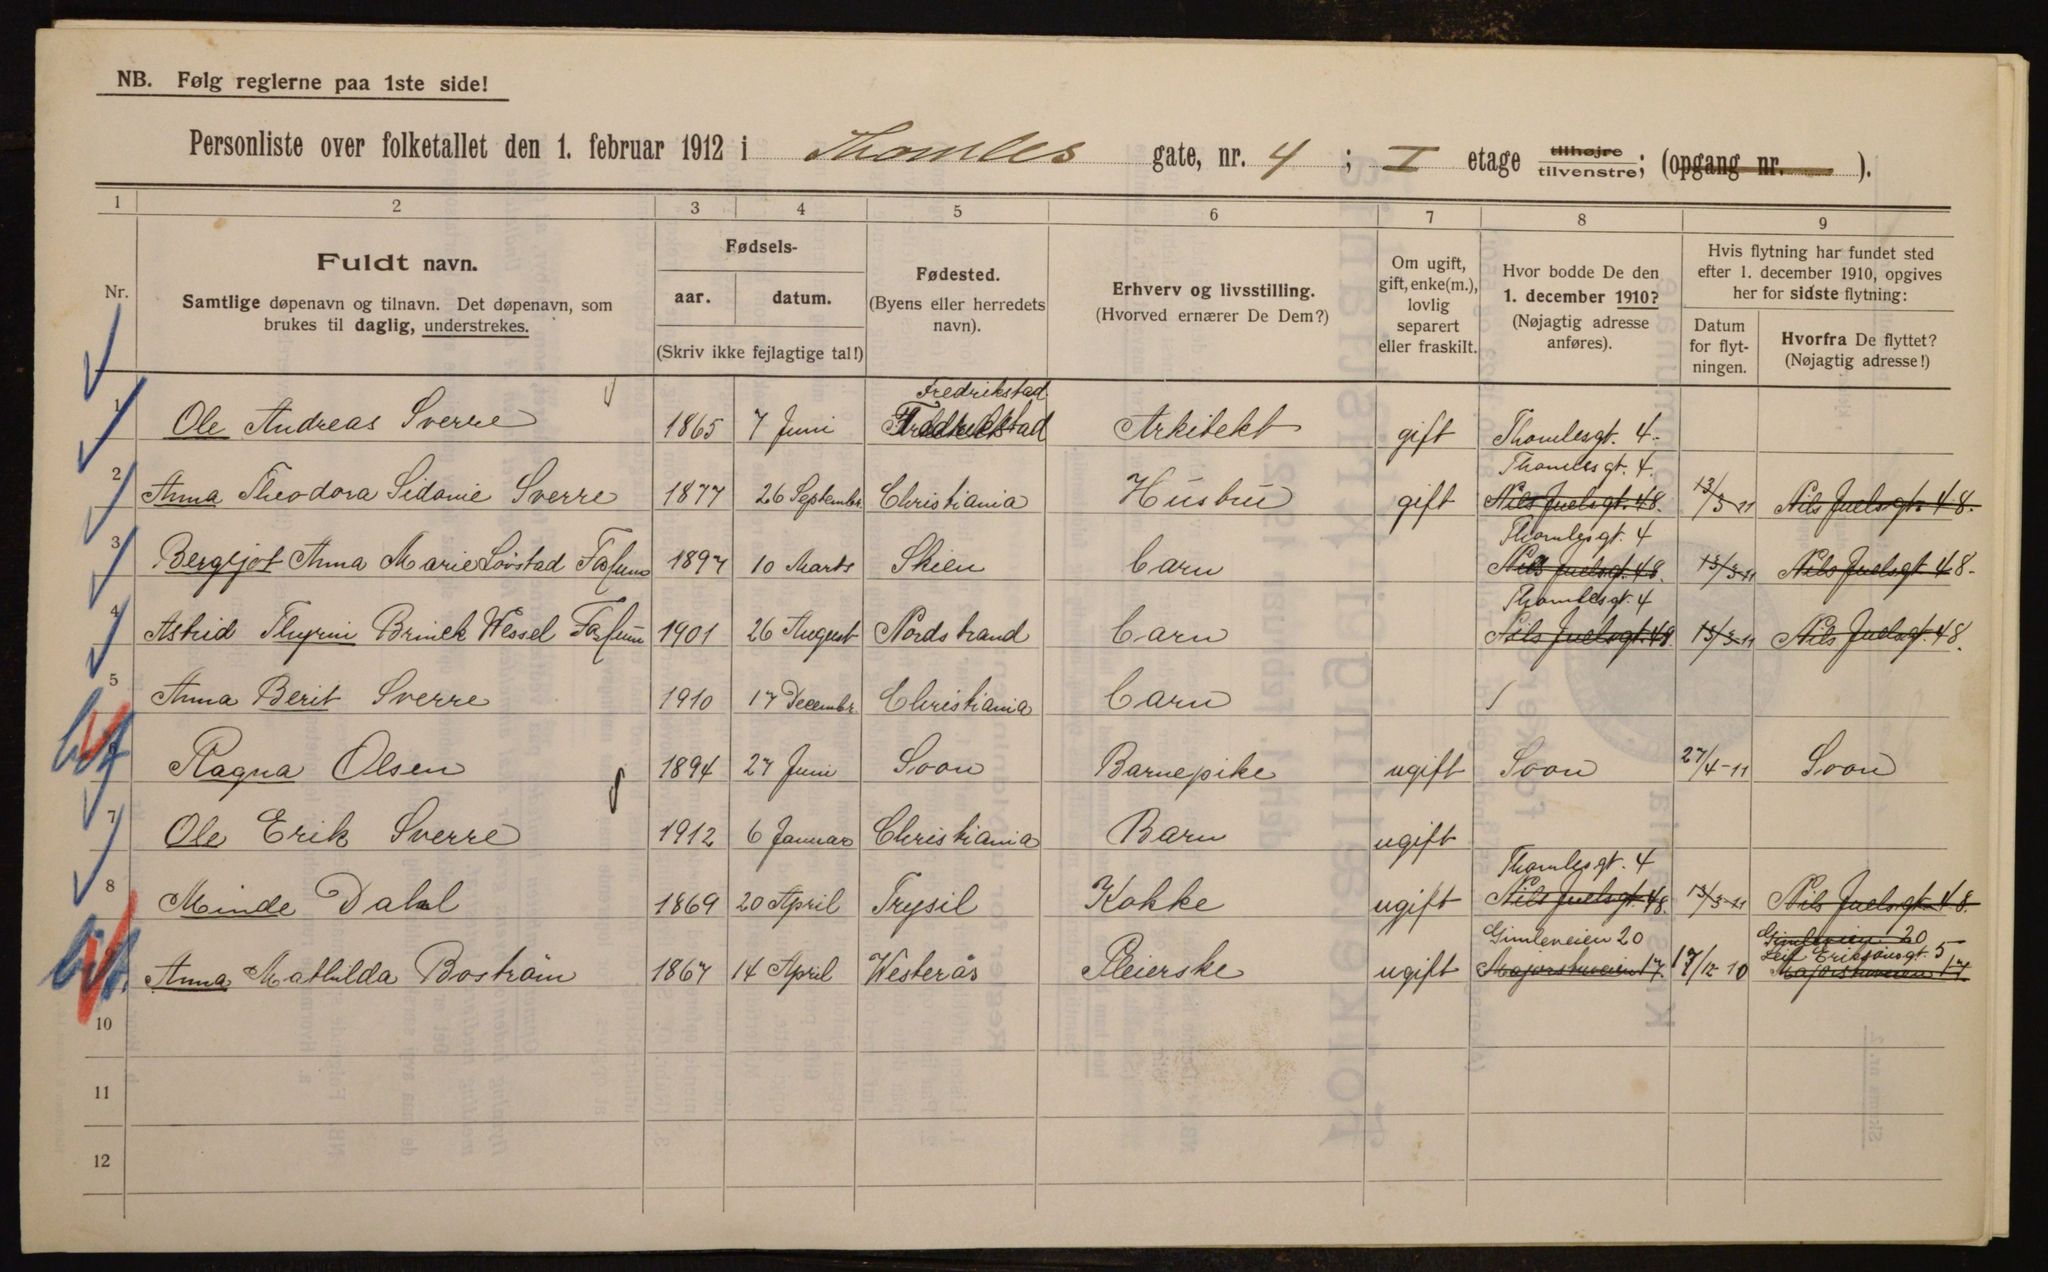 NB. Følg reglerne paa 1ste side!
Personliste over folketallet den 1. februar 1912 i Thomles gate, nr. 4 ; I etage tilhøjre tilvenstre; (opgang nr. ).
1 2 3 4 5 6 7 8 9
Nr.
Fuldt navn.
Samtlige døpenavn og tilnavn. Det døpenavn, som
brukes til daglig, understrekes.
Fødsels-
aar. datum.
(Skriv ikke fejlagtige tal!)
Fødested.
(Byens eller herredets
navn).
Erhverv og livsstilling.
(Hvorved ernærer De Dem?)
Om ugift,
gift, enke(m.),
lovlig
separert
eller fraskilt.
Hvor bodde De den
1. december 1910?
(Nøjagtig adresse
anføres).
Hvis flytning har fundet sted
efter 1. december 1910, opgives
her for sidste flytning:
Datum
for flyt-
ningen.
Hvorfra De flyttet?
(Nøjagtig adresse!)
Fredrikstad
1 Ole Andreas Sverre 1865 7 Juni Fredrikstad Arkitekt gift Thomlesgt. 4.
Thomlesgt. 4.
2 Anna Theodora Sidonie Sverre 1877 26 Septembr. Christiania Hustru gift Nils Juelsgt. 48. 13/3-11 Nils Juelsgt. 48.
Thomlesgt. 4
3 Bergljot Anna Marie Løvstad 1897 10 Marts Skien Barn Nils Juelsgt. 48. 13/3-11 Nils Juelsgt 48.
Thomlesgt. 4
4 Astrid Thyrin Brinck Wessel 1901 26 August Nordstrand Barn Nils Juelsgt. 48 13/3-11 Nils Juelsgt. 48.
5 Anna Berit Sverre 1910 17 Decembr. Christiania Barn /
6 Ragna Olsen 1894 27 Juni Soon Barnepike ugift Soon 27/4-11 Soon
7 Ole Erik Sverre 1912 6 Januar Christiania Barn ugift
Thomlesgt. 4
8 Minde Dahl 1869 20 April Trysil Kokke ugift Nils Juelsgt. 48 13/3-11 Nils Juelsgt. 48.
Gimleveien 20 Gimleveien 20
Leif Eriksønsgt. 5
9 Anna Mathilda Boström 1867 14 April Westerås Pleierske ugift Majorstuveien 17. 17/12 10 Majorstuveien 17.
10
11
12